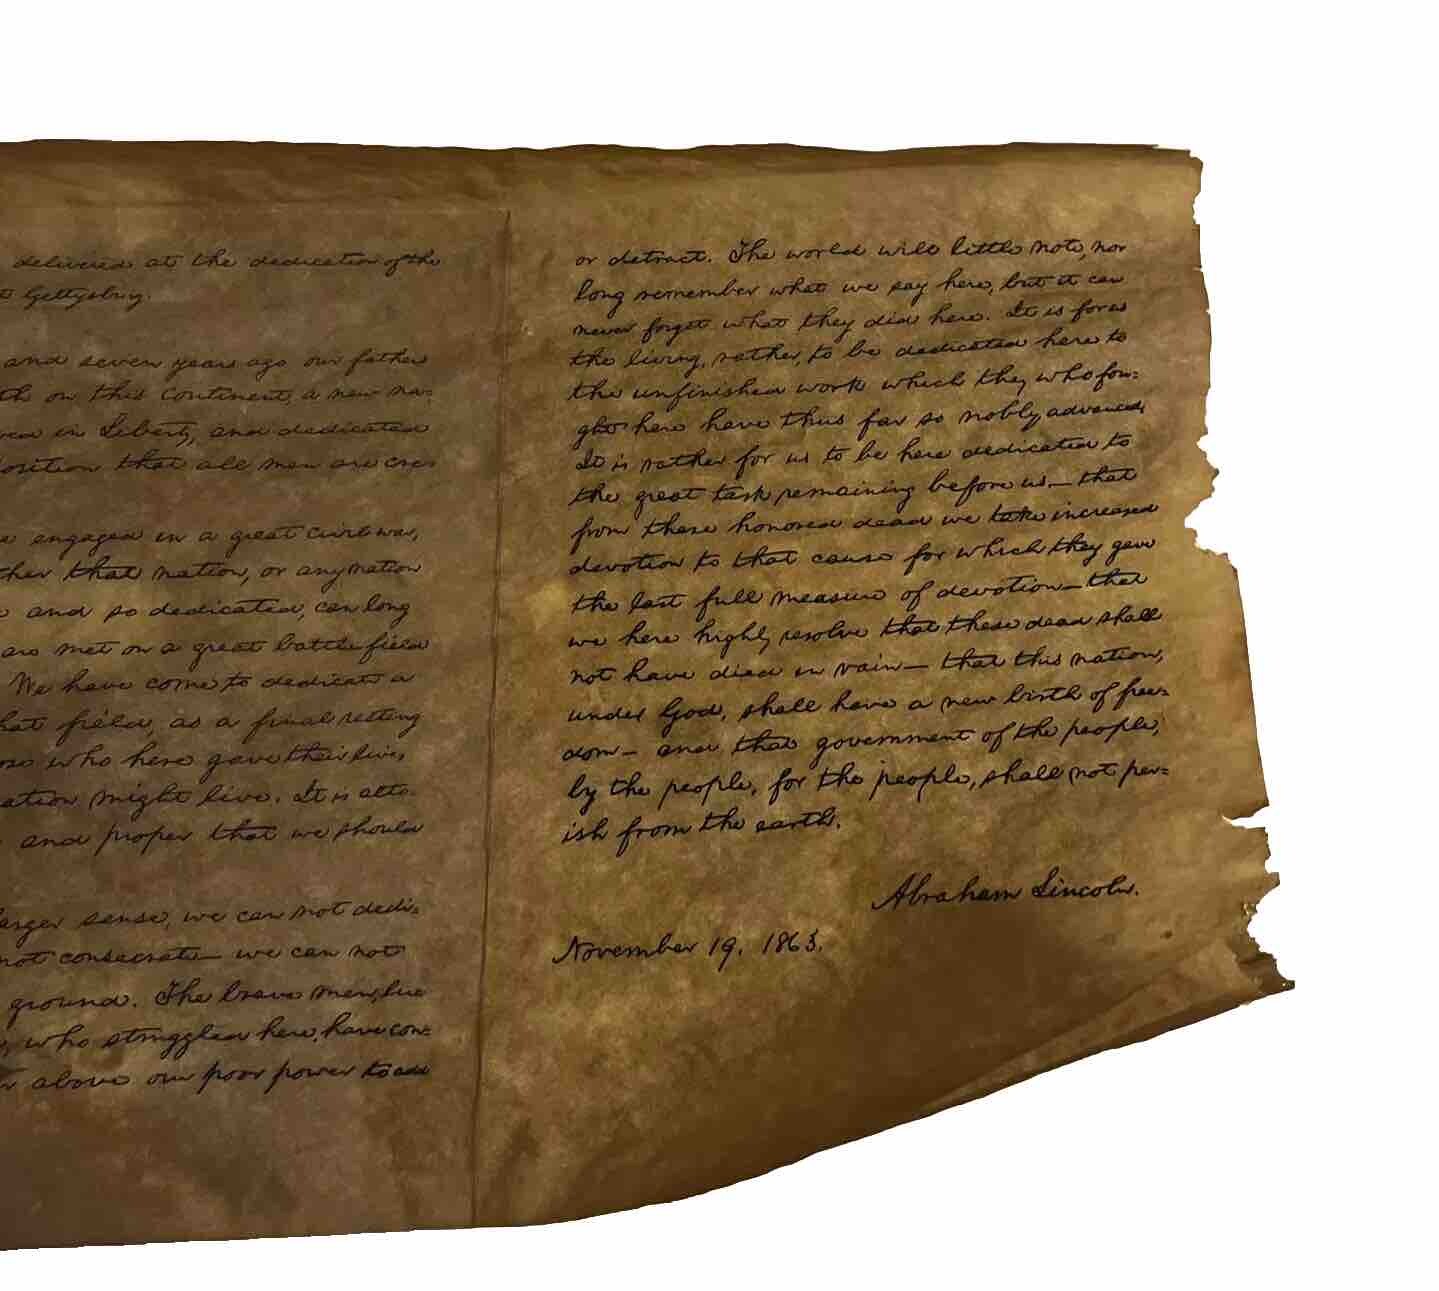 delivered at the dedication of the
Gettysburg.
and seven years ago our fathers
on this continent, a new na=
in Liberty, and dedicated
that all men are cre=
engaged in a great civil war,
that nation, or any nation
and so dedicated, can long
are met on a great battle-field
We have come to dedicate a
that field, as a final resting
who here gave their lives,
nation might live. It is alto=
and proper that we should
larger sense, we can not dedi=
not consecrate— we can not
ground. The brave men, live
who struggled here, have con=
above our poor power to add
or detract. The world will little note, nor
long remember what we say here, but it can
never forget what they did here. It is for us
the living, rather, to be dedicated here to
the unfinished work which they who fou=
ght here have thus far so nobly advanced,
It is rather for us to be here dedicated to
the great task remaining before us— that
from these honored dead we take increased
devotion to that cause for which they gave
the last full measure of devotion— that
we here highly resolve that these dead shall
not have died in vain— that this nation,
under God, shall have a new birth of free=
dom— and that government of the people,
by the people, for the people, shall not per=
ish from the earth.
Abraham Lincoln.
November 19, 1863.